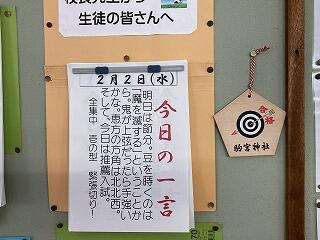 校長先生から
生徒の皆さんへ
2月2日(水)
今日の一言
明日は節分。豆を蒔くのは
「魔を滅する」ということか
ら。鬼が上弦だったら手強い
かな。恵方の方角は北北西。
そして、今日は推薦入試。
全集中 壱の型 緊張切り!
合格
駒宮神社